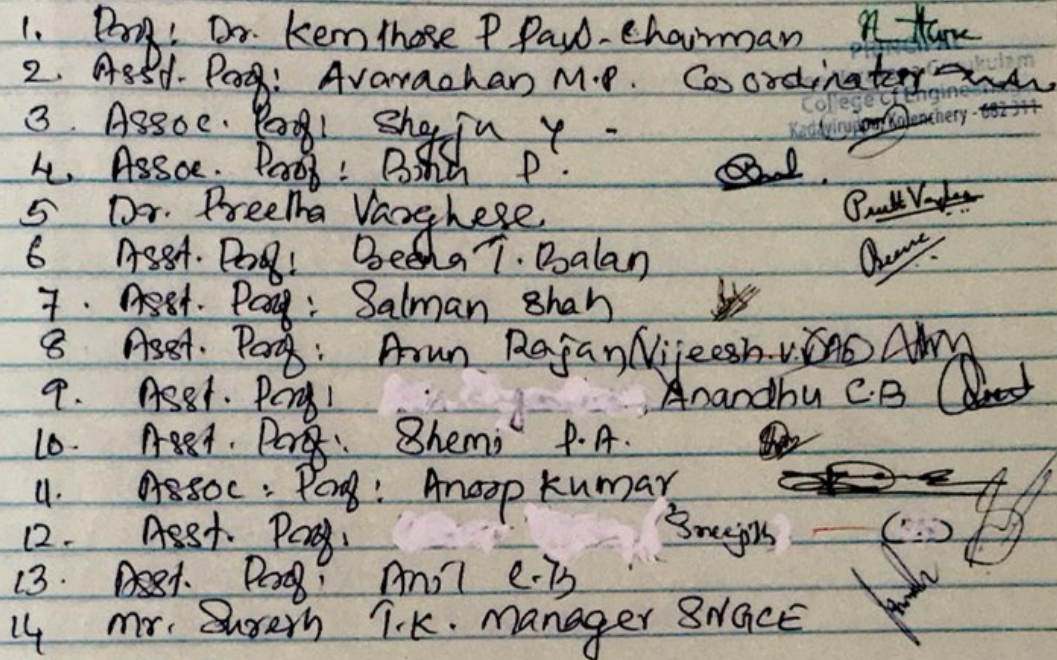 1. Prof: Dr. Kemthose P Paul - Chairman
PRINCIPAL
2. Asst. Prof: Avarachan M.P. Coordinator
College of Engineering
Kadayiruppu, Kolenchery - 682 311
3. Assoc. Prof: Shyju Y -
4. Assoc. Prof: P.
5 Dr. Preetha Varghese
6 Asst. Prof: Beena T. Balan
7. Asst. Prof: Salman Shah
8 Asst. Prof: Arun Rajan (Vijeesh.V.
9. Asst. Prof: Anandhu C.B
10. Asst. Prof: Shemi P.A.
11. Assoc. Prof: Anoop Kumar
12. Asst. Prof. (Sreejith)
13. Asst. Prof: Anil C.B
14 Mr. Suresh T.K. Manager SNGCE